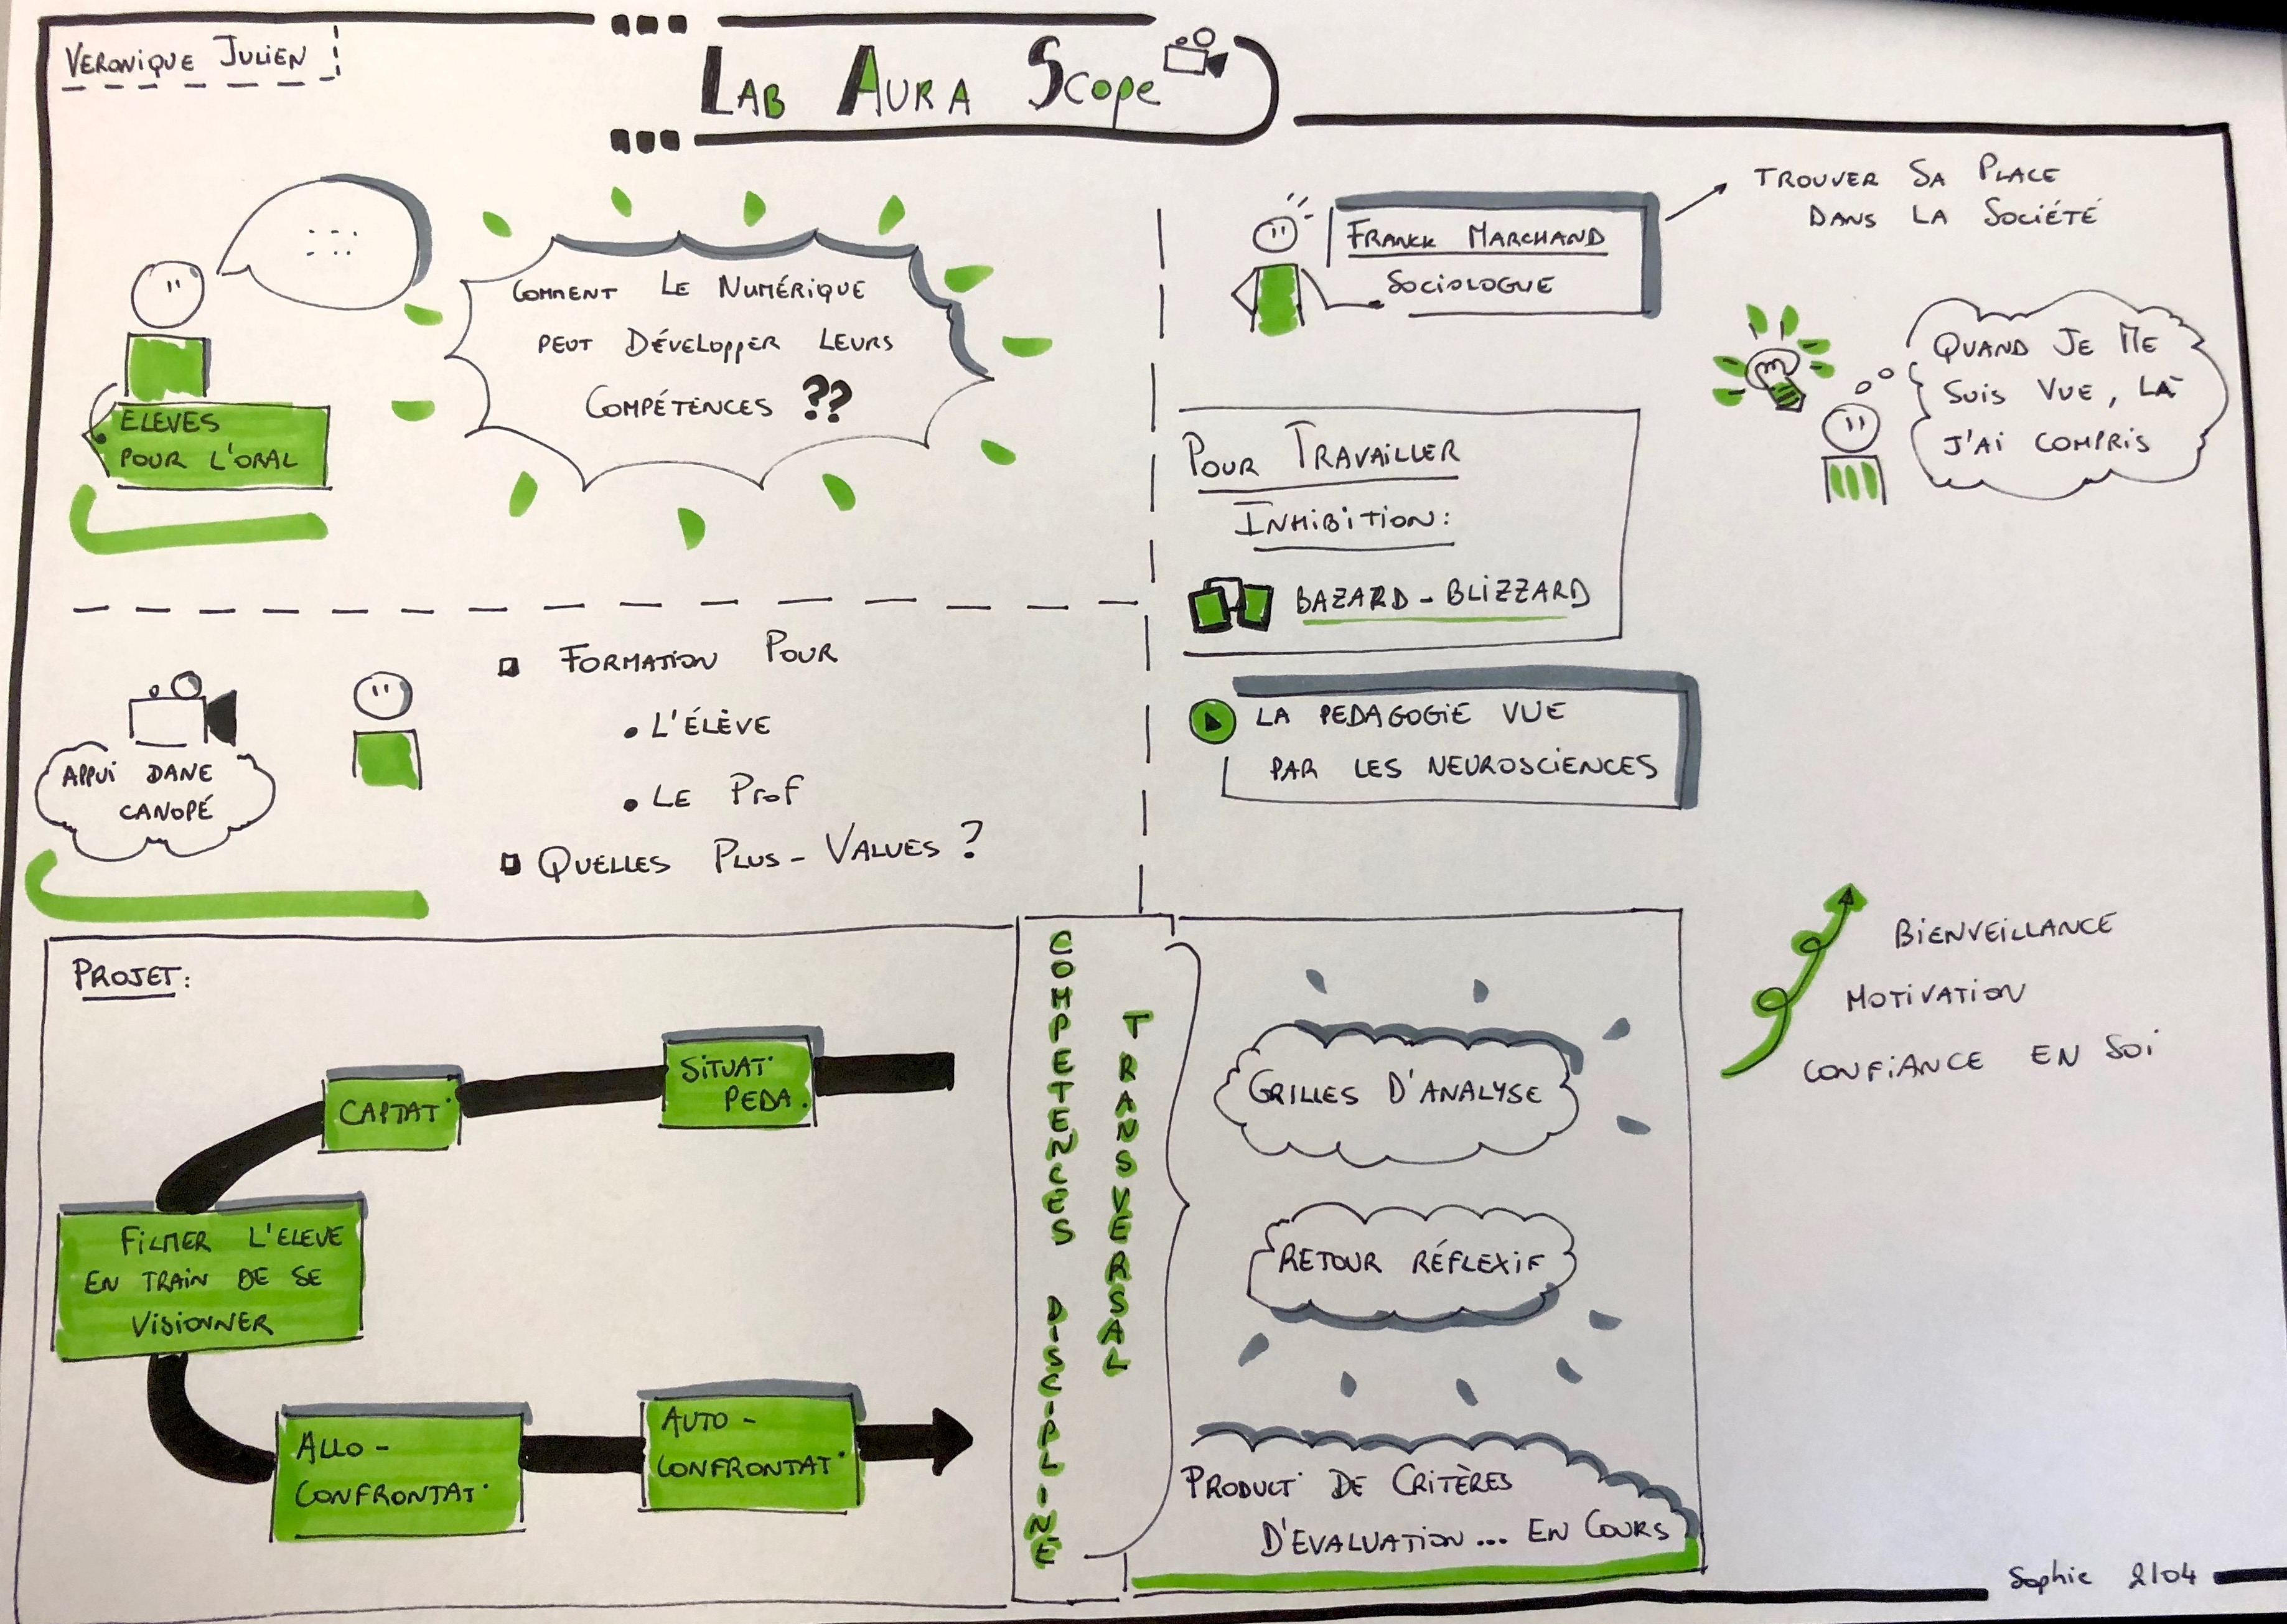 VERONIQUE JULIEN
LAB AURA SCOPE
ELEVES
POUR L'ORAL
COMMENT LE NUMÉRIQUE
PEUT DÉVELOPPER LEURS
COMPÉTENCES ??
FRANCK MARCHAND
SOCIOLOGUE
TROUVER SA PLACE
DANS LA SOCIÉTÉ
QUAND JE ME
SUIS VUE, LÀ
J'AI COMPRIS
POUR TRAVAILLER
INHIBITION:
BAZARD - BLIZZARD
LA PEDAGOGIE VUE
PAR LES NEUROSCIENCES
APPUI DANE
CANOPÉ
FORMATION POUR
• L'ÉLÈVE
• LE PROF
QUELLES PLUS-VALUES ?
PROJET:
SITUAT°
PEDA.
CAPTAT°
FILMER L'ELEVE
EN TRAIN DE SE
VISIONNER
ALLO-
CONFRONTAT°
AUTO-
CONFRONTAT°
COMPETENCES DISCIPLINE
TRANSVERSAL
GRILLES D'ANALYSE
RETOUR RÉFLEXIF
PRODUCT° DE CRITÈRES
D'EVALUATION... EN COURS
BIENVEILLANCE
MOTIVATION
CONFIANCE EN SOI
Sophie 2/04